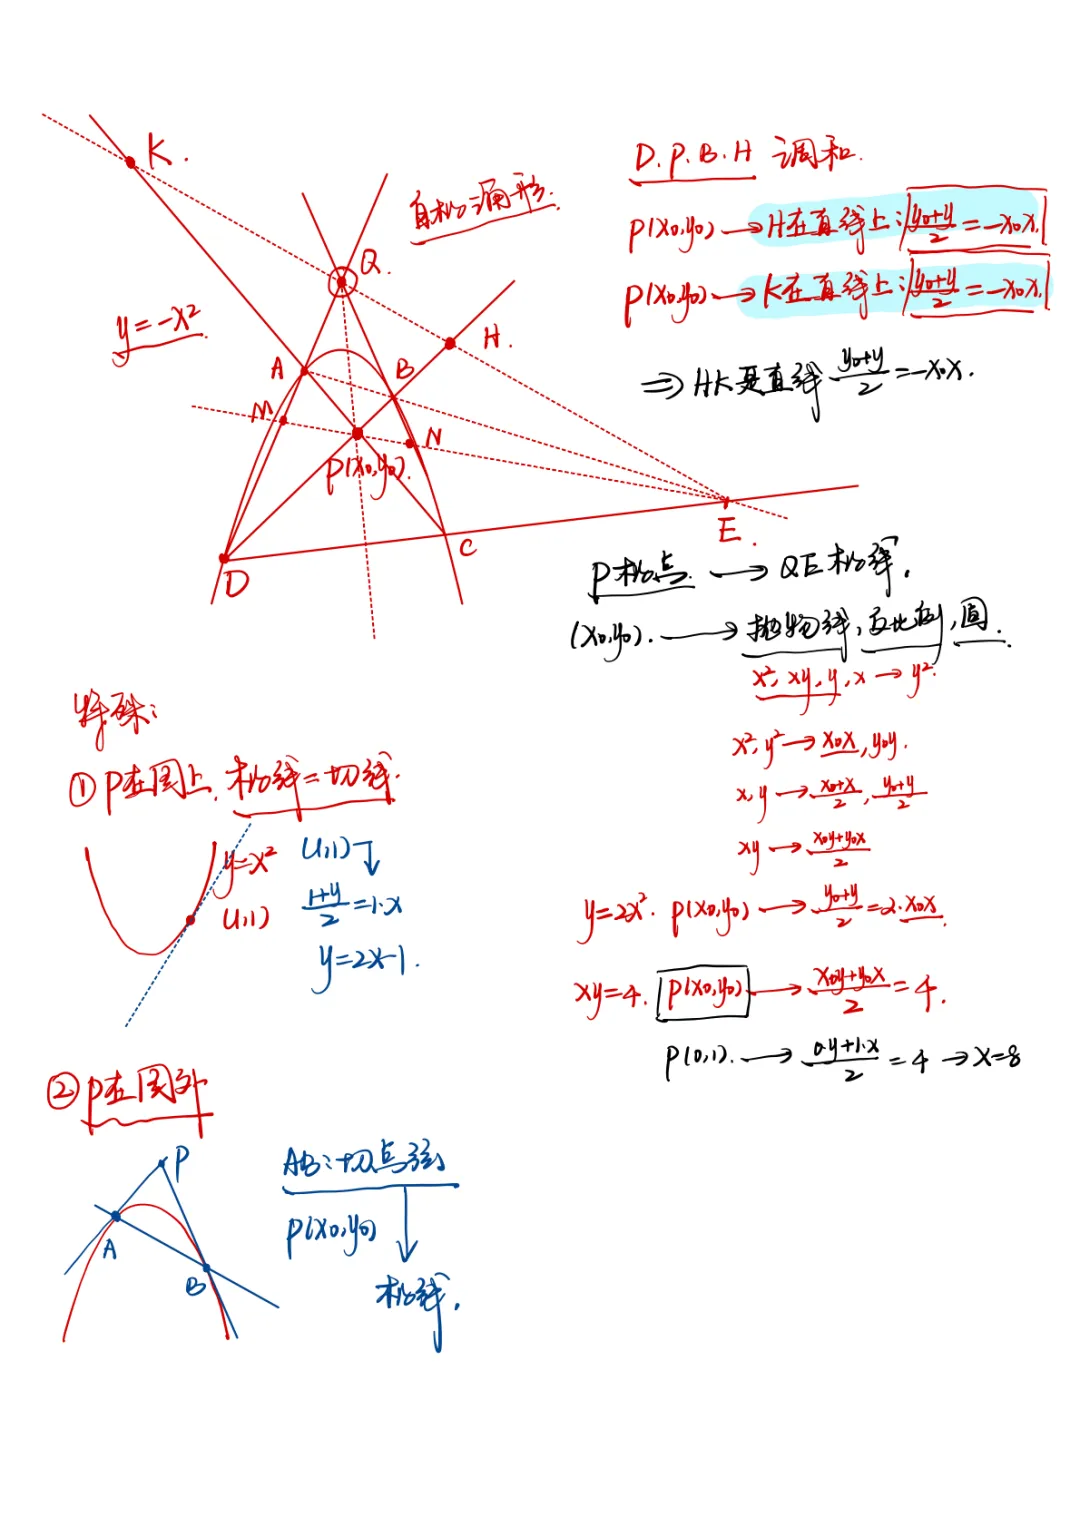 K.
自极三角形.
Q.
y=-x²
H.
A
B
M
N
P(x₀,y₀).
D
C
E.
D.P.B.H 调和.
P(x₀,y₀) → H在直线上: (y₀+y)/2 = -x₀x.
P(x₀,y₀) → K在直线上: (y₀+y)/2 = -x₀x.
⇒ HK是直线 (y₀+y)/2 = -x₀x.
P极点. → QE极线.
(x₀,y₀). → 抛物线, 反比例, 圆.
x², xy, y, x → y².
x², y² → x₀x, y₀y.
x, y → (x₀+x)/2, (y₀+y)/2
xy → (x₀y+y₀x)/2
y=2x². P(x₀,y₀) → (y₀+y)/2 = 2·x₀x.
xy=4. P(x₀,y₀) → (x₀y+y₀x)/2 = 4.
P(0,1). → (0·y+1·x)/2 = 4 → x=8
特殊:
① P在图上, 极线=切线.
y=x²
(1,1)
(1,1)
(1+y)/2 = 1·x
y=2x-1.
② P在图外
P
A
B
AB: 切点弦
P(x₀,y₀)
极线.